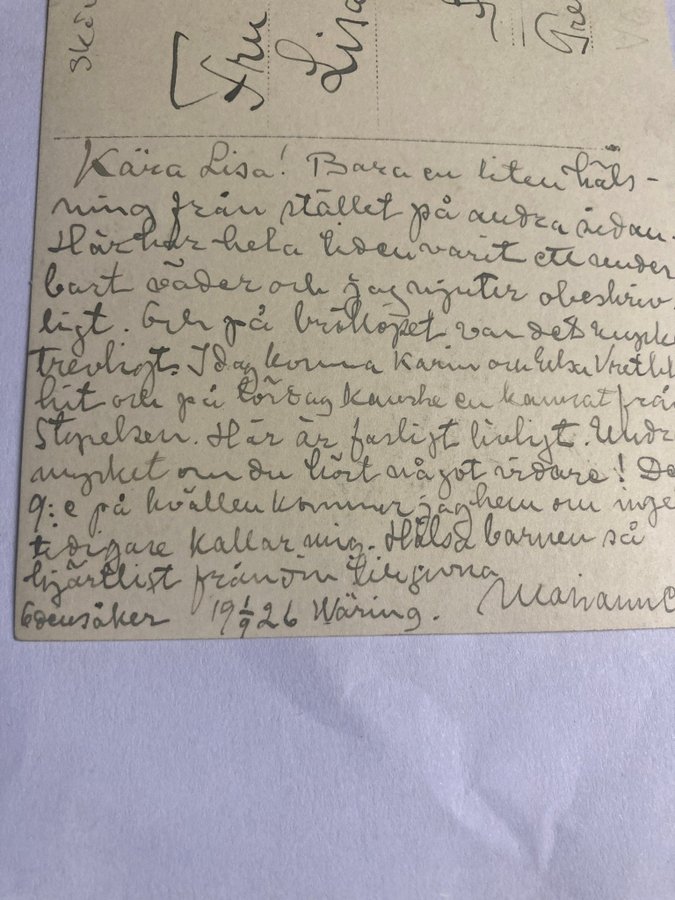 Skö
Fru
Lisa
Gre
Kära Lisa! Bara en liten häls-
ning från stället på andra sidan.
Här har hela tiden varit ett under
bart väder och jag njuter obeskriv-
ligt. Och på bröllopet var det myck
trevligt. I dag komma Karin och
hit och på lördag kanske en kamrat frå
Styrelsen. Här är farligt livligt. Undr
mycket om du hört något vidare! De
9:e på kvällen kommer jag hem om inge
tidigare kallar mig. Hälsa barnen så
hjärtligt från din tillgivna
Marianne
Edensåker 19 1/9 26 Wäring.